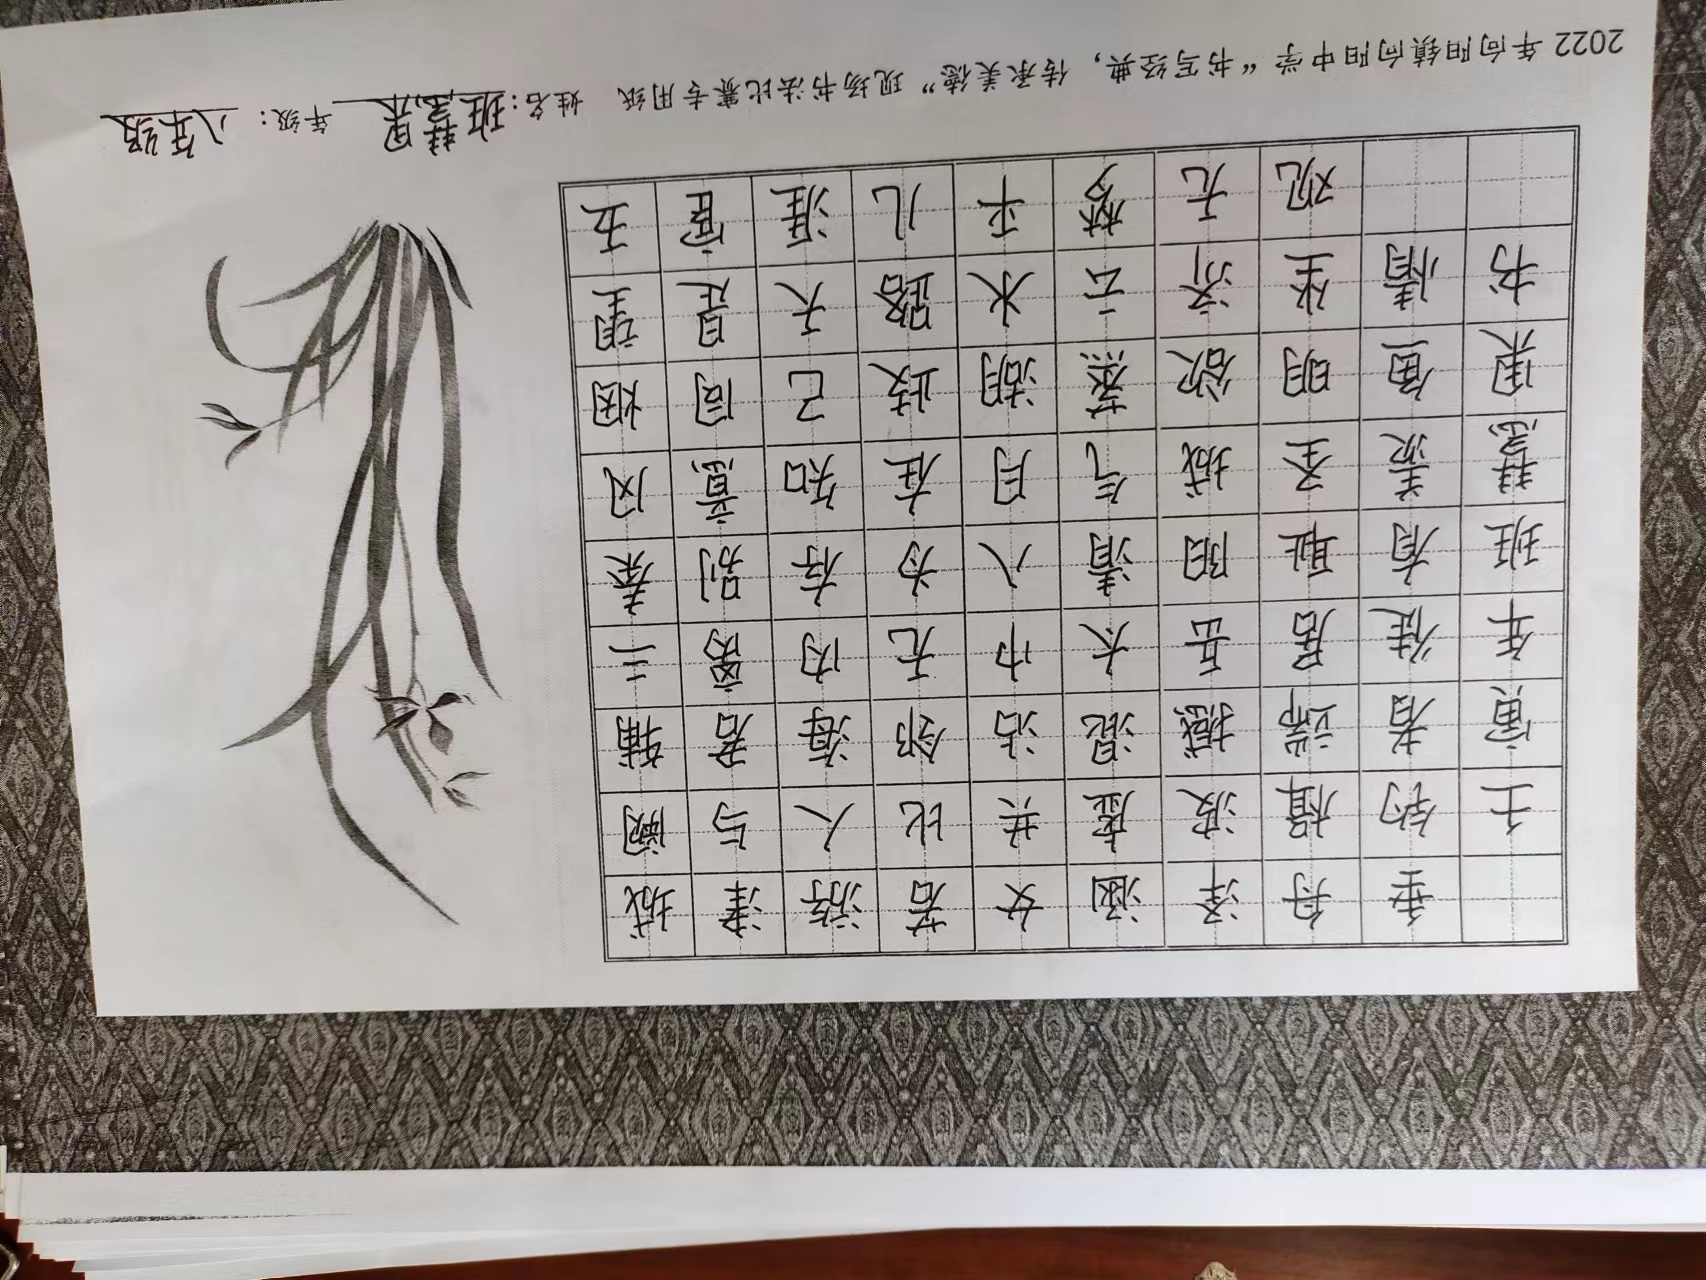 2022 年向阳镇向阳中学“书写经典，传承美德”现场书法比赛专用纸 姓名：班慧果 年级：八年级
城阙辅三秦风烟望五
津与君离别意同是宦
游人海内存知己天涯
若比邻无为在歧路儿
女共沾巾八月湖水平
涵虚混太清气蒸云梦
泽波撼岳阳城欲济无
舟楫端居耻圣明坐观
垂钓者徒有羡鱼情
壬寅年班慧果书